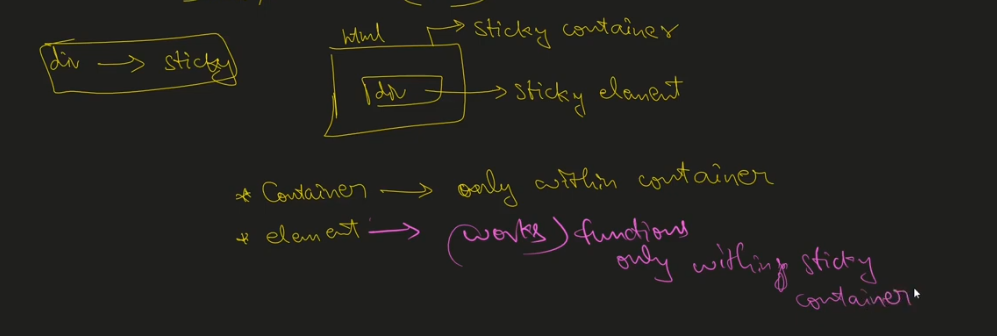 html → sticky container
div → sticky
div → sticky element
* Container → only within container
* element → (works) functions
only within sticky
container